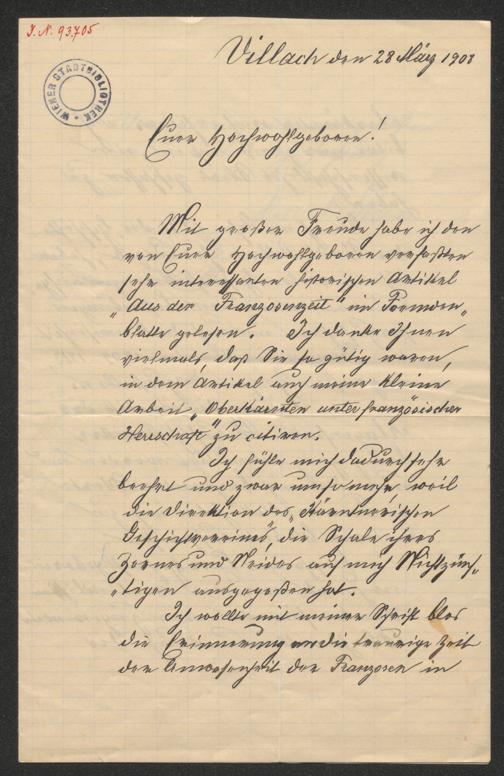 J. N. 93.705
WIENER STADTBIBLIOTHEK
Villach den 28 März 1908
Euer Hochwohlgeboren!
Mit großer Freude habe ich den
von Euer Hochwohlgeboren verfaßten
sehr interessanten historischen Artikel
„Aus der Franzosenzeit" im Fremden„
blatte gelesen. Ich danke Ihnen
vielmals, daß Sie so gütig waren,
in dem Artikel auch meine kleine
Arbeit „Oberkärnten unter französischer
Herrschaft" zu citiren.
Ich fühle mich dadurch sehr
beehrt und zwar umsomehr, weil
die Direktion des „Kärntnerischen
Geschichtsvereines", die Schale ihres
Zornes und Neides auf mich Nichtzünf„
„tigen ausgegoßen hat.
Ich wollte mit meiner Schrift blos
die Erinnerung an die traurige Zeit
der Anwesenheit der Franzosen in